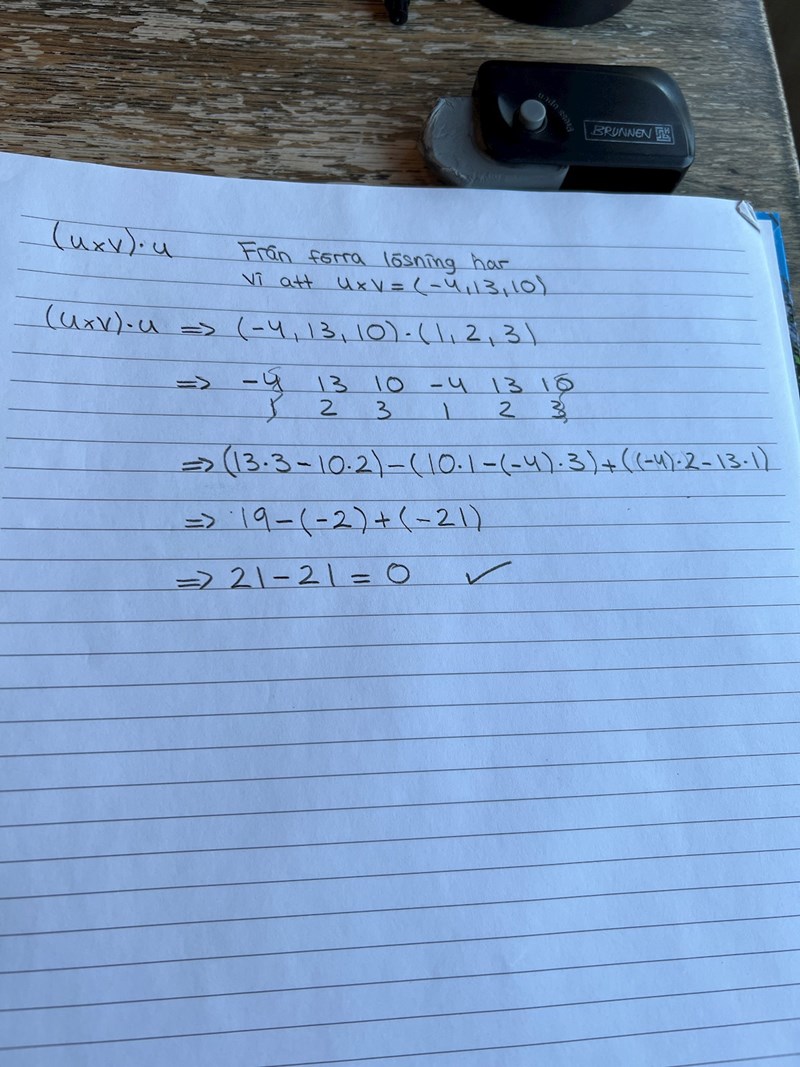 BRUNNEN
(u×v)·u Från förra lösning har
vi att u×v = (-4,13,10)
(u×v)·u => (-4, 13, 10)·(1, 2, 3)
=> -4 13 10 -4 13 10
1 2 3 1 2 3
=> (13·3-10·2)-(10·1-(-4)·3)+((-4)·2-13·1)
=> 19-(-2)+(-21)
=> 21-21=0 ✓